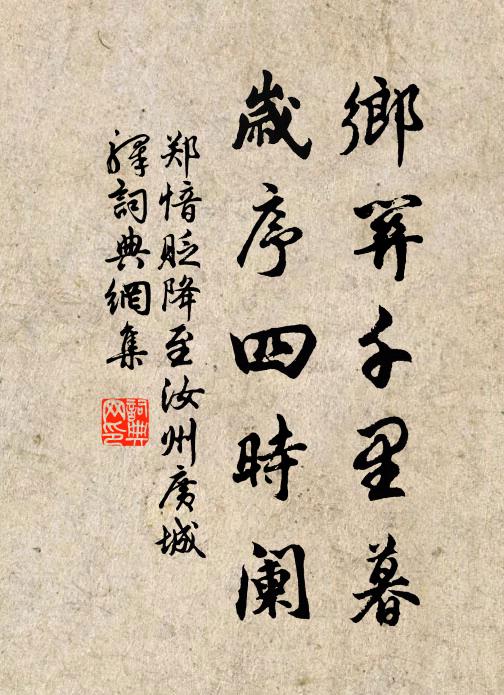 鄉關千里暮
歲序四時闌
郑愔貶降至汝州廣城
驛詞典網集
詞典
网印